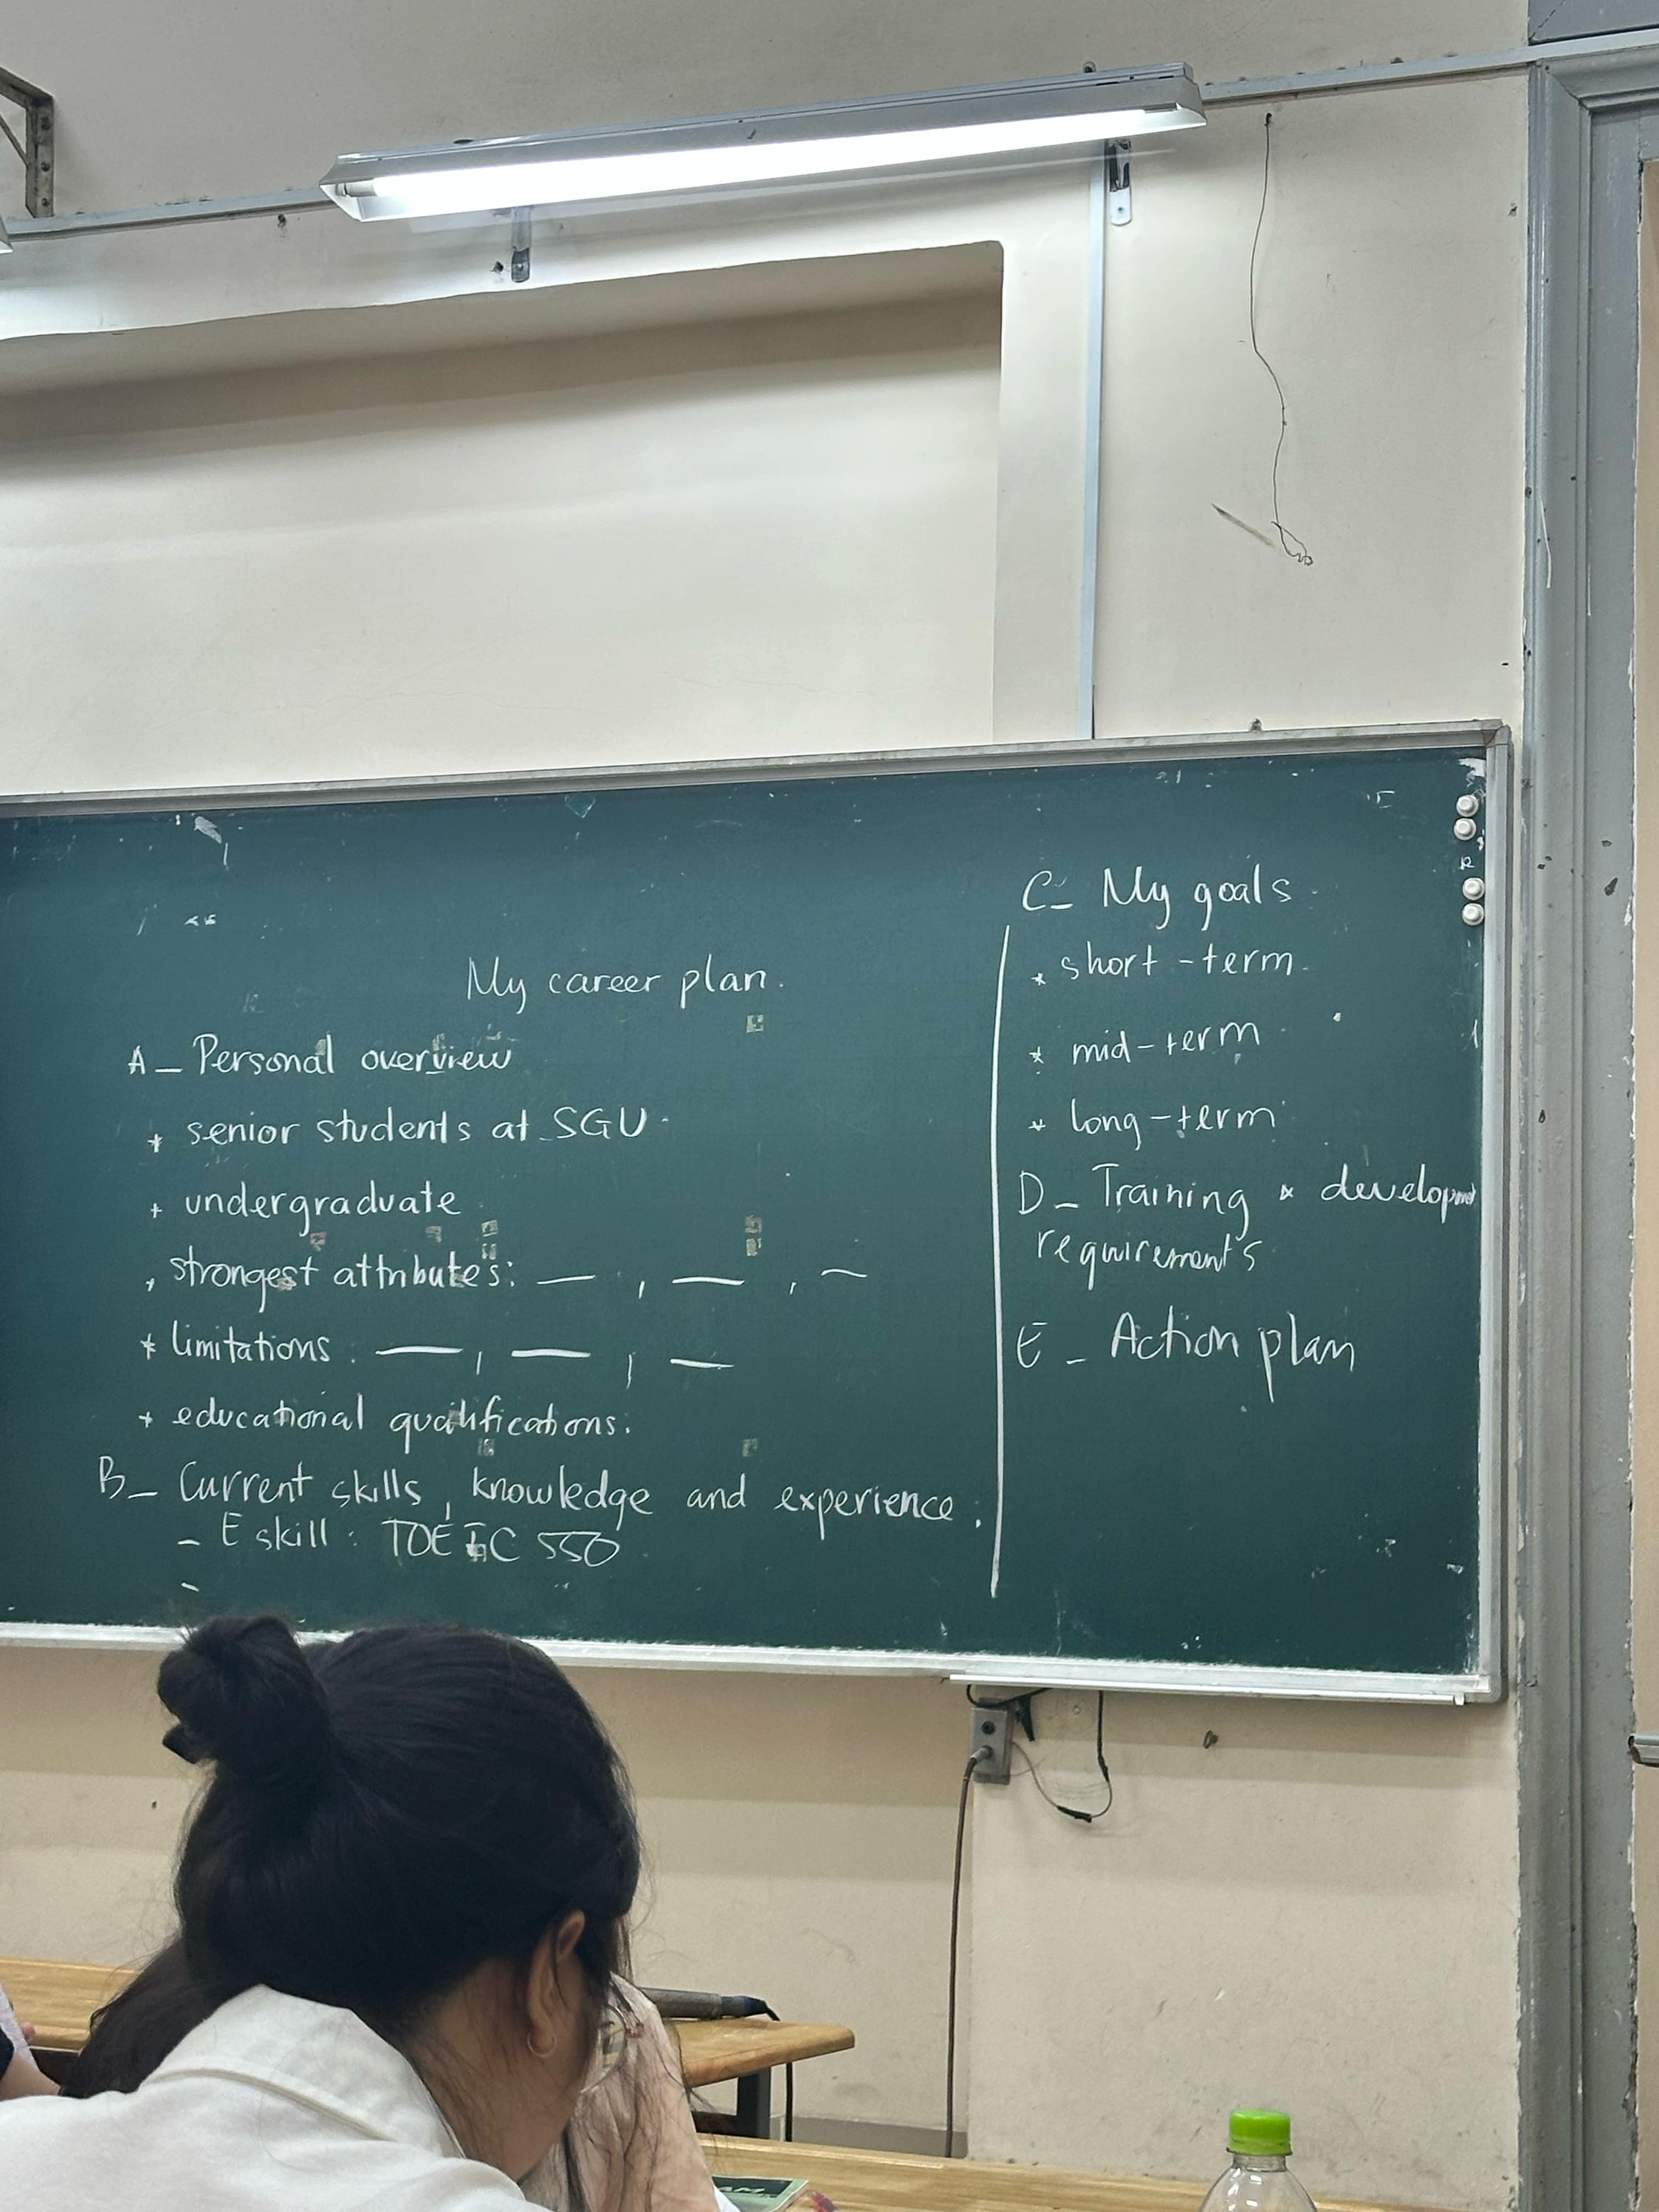 My career plan.
A_ Personal overview
* senior students at SGU
+ undergraduate
, strongest attributes: — , — , —
* limitations : — , — , —
+ educational qualifications:
B_ Current skills, knowledge and experience:
- E skill: TOEIC 550
-
C_ My goals
* short-term
* mid-term
* long-term
D_ Training & development
requirements
E_ Action plan